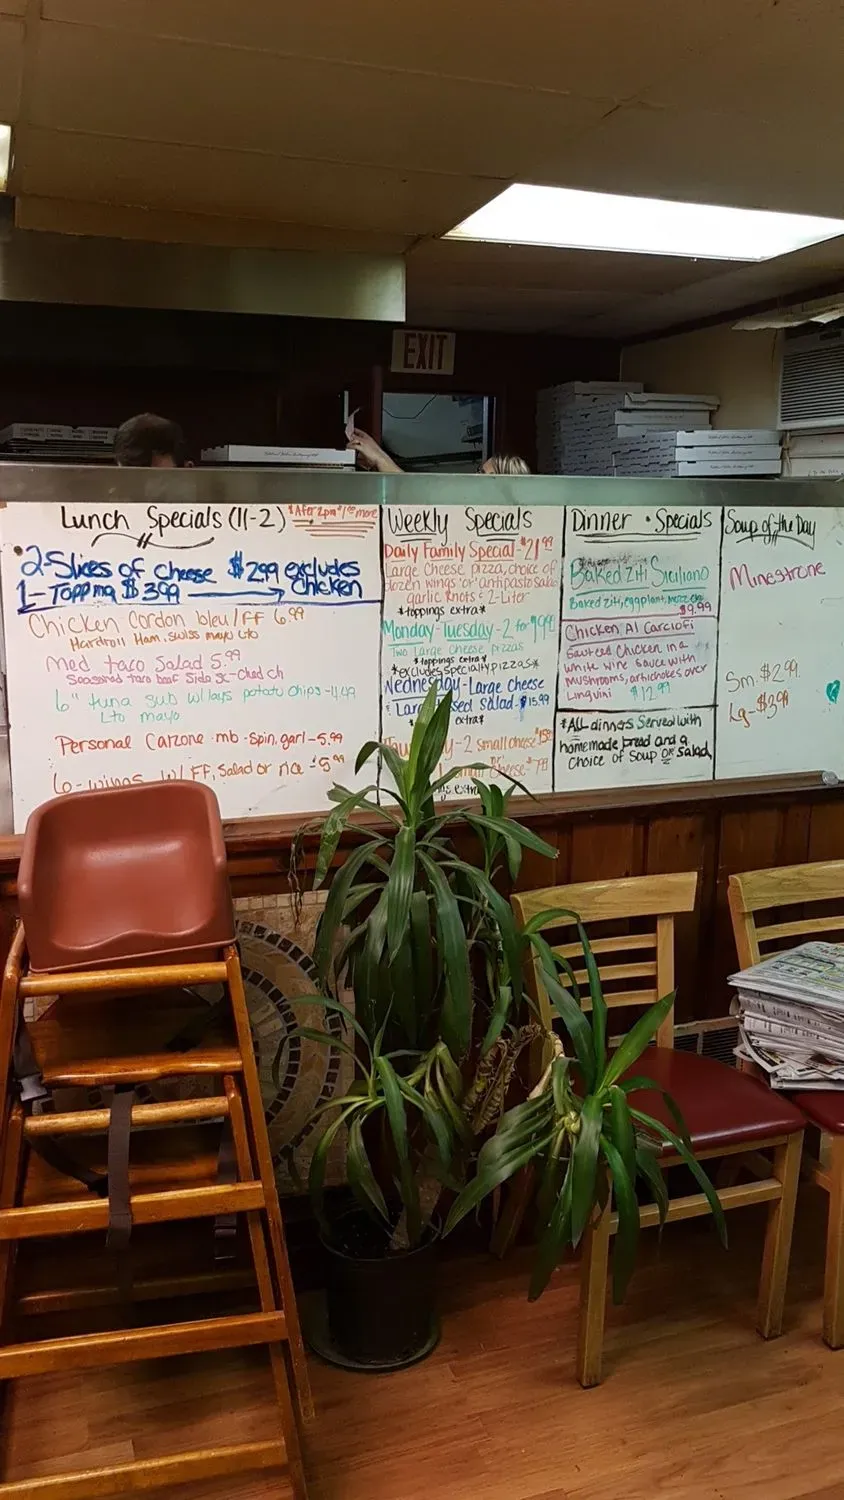 EXIT
Lunch Specials (11-2)
*After 2pm $1.00 more
2-Slices of cheese $2.99 excludes
1-Topping $3.99 → chicken
Chicken Cordon bleu/FF 6.99
Hardroll Ham, swiss mayo Lto
Med taco Salad 5.99
Seasoned taco beef Side SC-Ched ch
6" tuna sub w/lays potato chips-4.49
Lto mayo
Personal Calzone mb-spin, garl-5.99
6-wings w/ FF, Salad or rice -$5.99
Weekly Specials
Daily Family Special-$21.99
Large Cheese pizza, choice of
dozen wings "or" antipasto salad
garlic knots & 2-Liter
*toppings extra*
Monday-Tuesday-2 for $19.99
Two Large cheese pizzas
*toppings extra*
*excludes specialty pizzas*
Wednesday-Large cheese
& Large Salad-$15.99
extra*
-2 small cheese
small cheese
Dinner • Specials
Baked Ziti Siciliano
Baked ziti, eggplant,
$9.99
Chicken Al Carciofi
Sauteed Chicken in a
white wine sauce with
mushrooms, artichokes over
Linguini $12.99
*ALL dinners Served with
homemade bread and a
choice of Soup OR salad
Soup of the Day
Minestrone
Sm. $2.99
Lg-$3.99